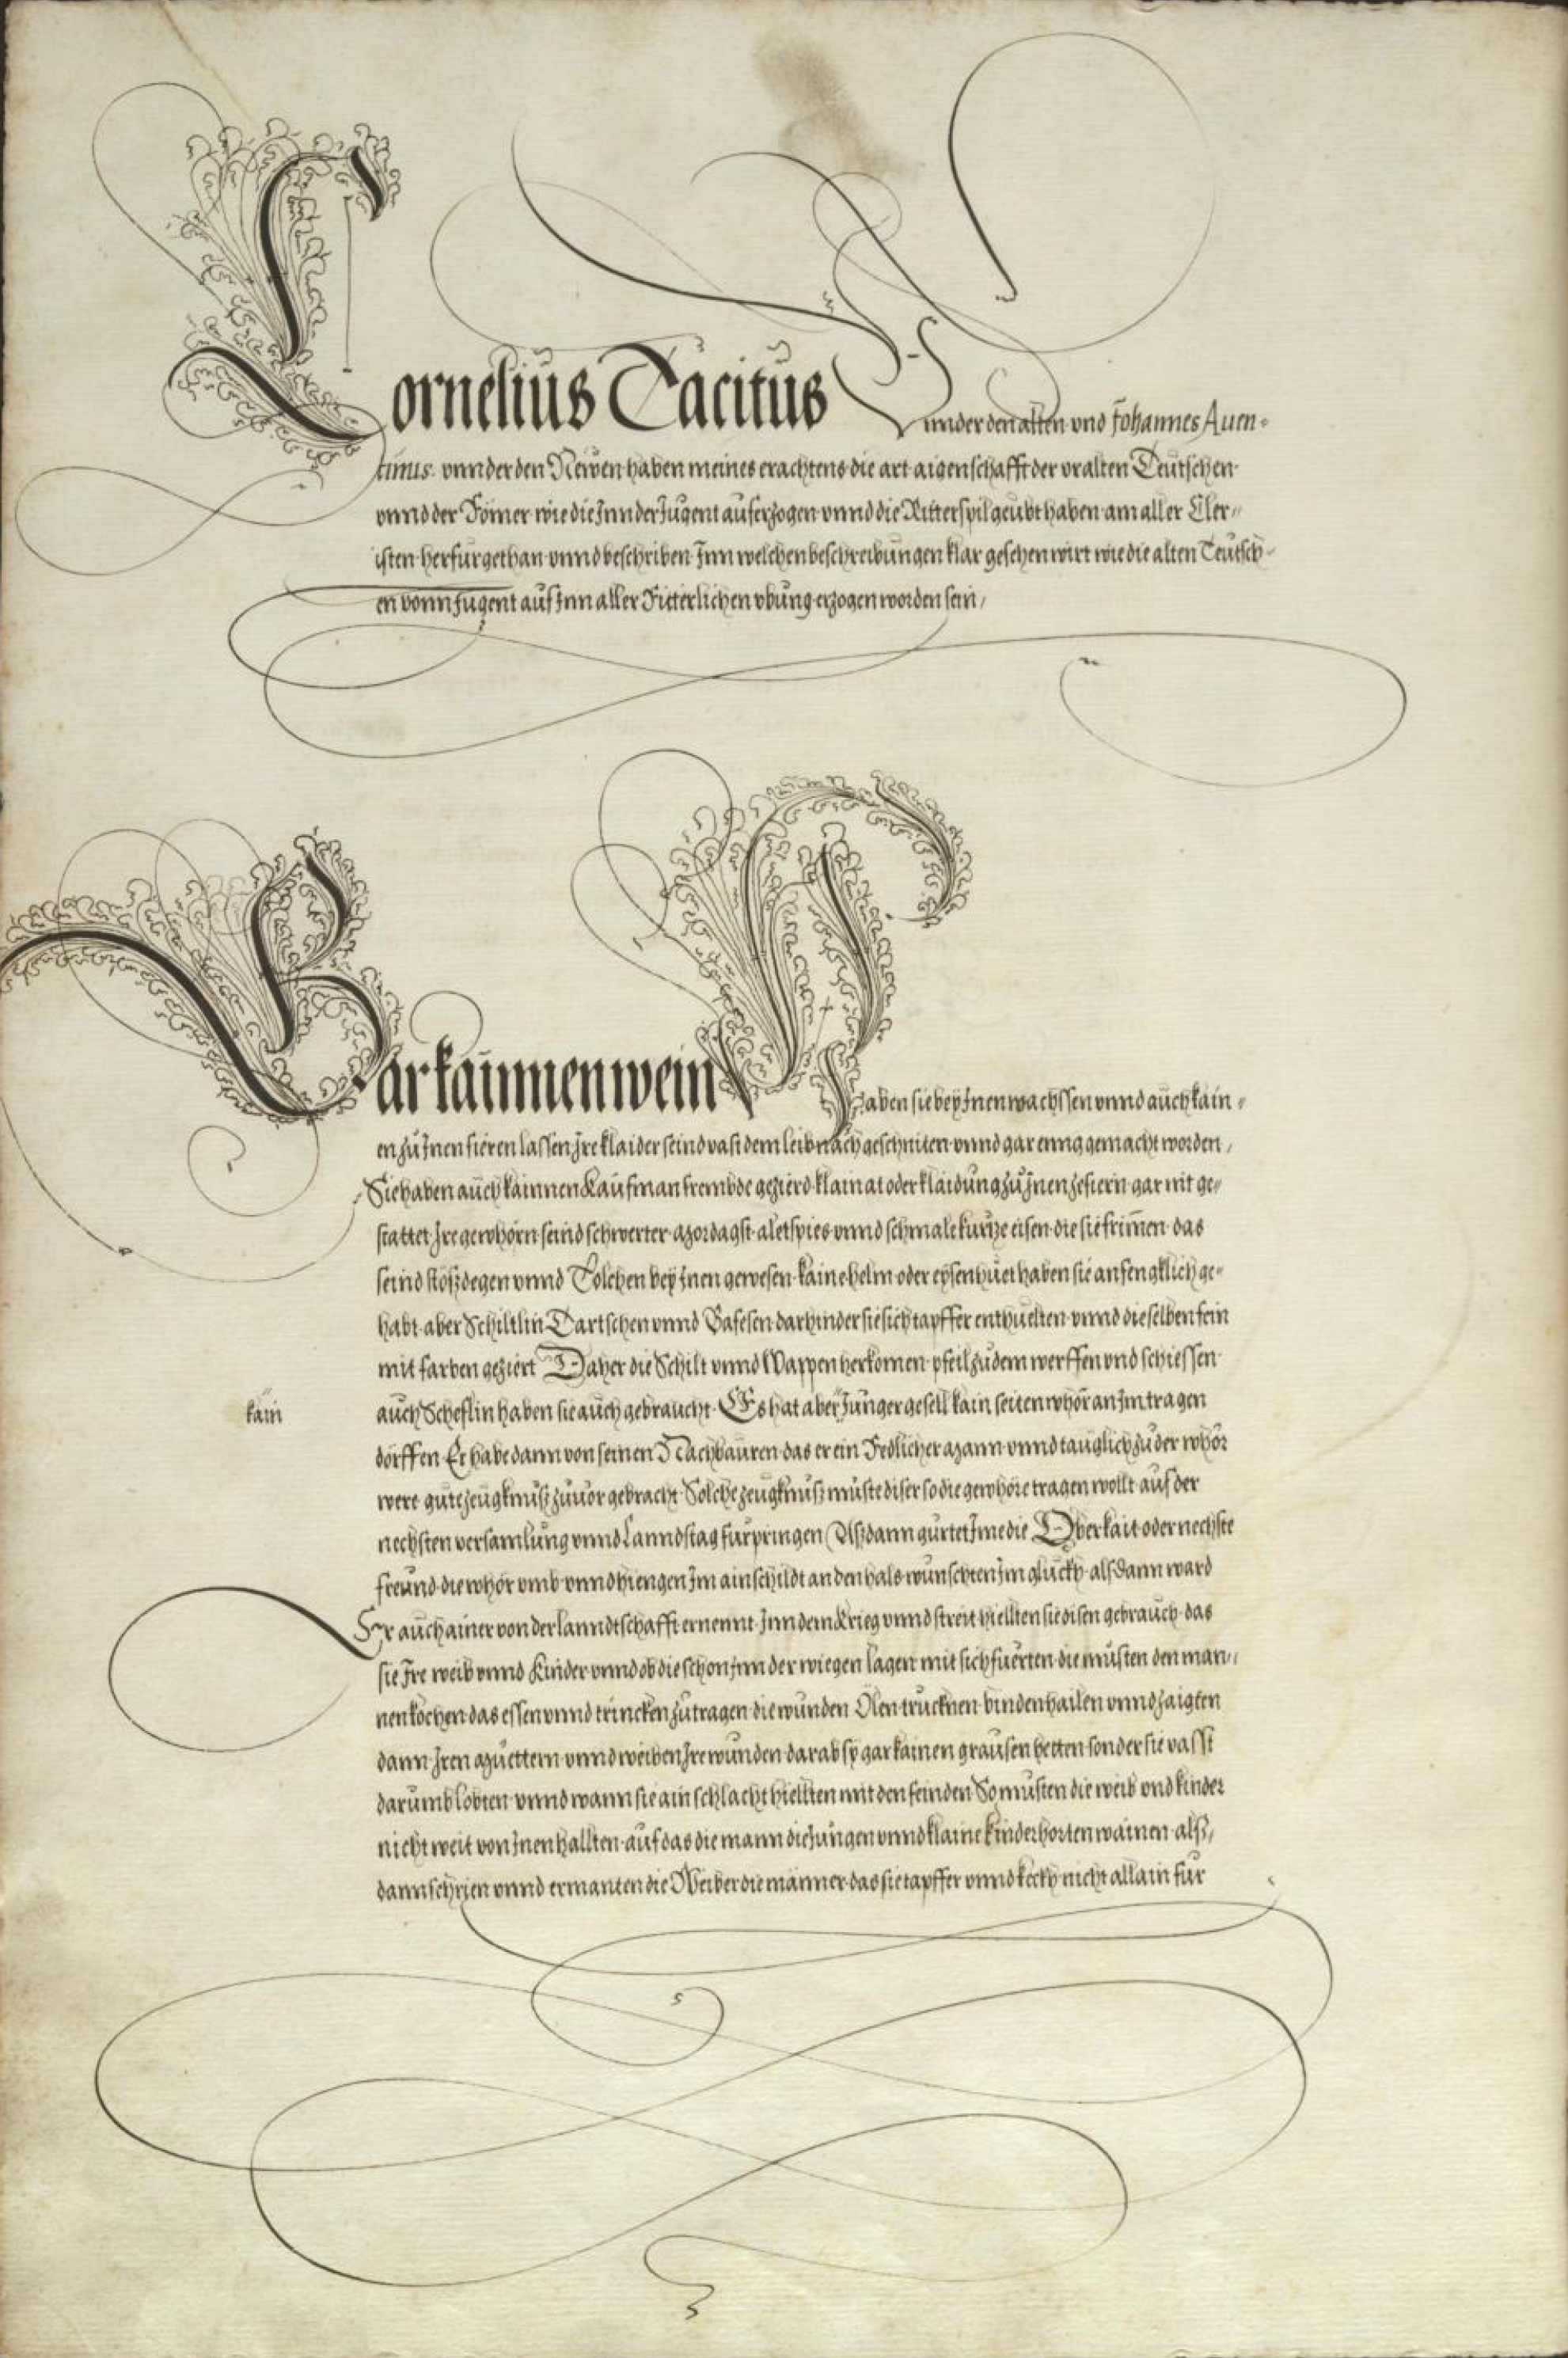 Cornelius Tacitus vnnder den alten vnd Johannes Auen-
tinus vnnder den Newen haben meines erachtens die art aigenschafft der vralten Teutschen
vnnd der Römer wie die Inn der Jugent auferzogen vnnd die Ritterspil geubt haben am aller Cler-
isten herfurgethan vnnd beschriben Inn welchen beschreibungen klar gesehen wirt wie die alten Teutsch-
en vonn Jugent auf Inn aller Ritterlichen vbung erzogen worden sein /
Gar kainnen wein Haben sie bey Inen wachssen vnnd auch kain-
en zu Inen fieren lassen Ire klaider seind vast dem leib nach geschniten vnnd gar enng gemacht worden /
Sie haben auch kainnen Kaufman frembde gezierd klainat oder klaidung zu Inen zefiern gar nit ge-
stattet Ire gewhörn seind schwerter mordagst aletspies vnnd schmale kurtze eisen die sie frimen das
seind stoszdegen vnnd Tolchen bey Inen gewesen kaine helm oder eysenhuet haben sie anfengklich ge-
habt aber Schiltlin Dartschen vnnd Bafesen darhinder sie sich tapffer enthuelten vnnd dieselben fein
mit farben geziert Daher die Schilt vnnd Wappen herkomen pfeil zu dem werffen vnd schiessen
kain
auch Scheflin haben sie auch gebraucht Es hat aber Junger gesell kain seitenwhör an Im tragen
dorffen Er habe dann von seinen Nachbauren das er ein Redlicher mann vnnd tauglich zu der whör
were gute zeugknusz zuuor gebracht Solche zeugknusz muste diser so die gewhöre tragen wollt auf der
nechsten versamlung vnnd Lanndstag furpringen Aszdann gurtet Ime die Oberkait oder nechste
freund die whör vmb vnnd hiengen Im ain schildt an den hals wunschten Im gluckh alsdann ward
Er auch ainer von der lanndtschafft ernennt Inn dem Krieg vnnd streit hiellten sie disen gebrauch das
sie Ire weib vnnd Kinder vnnd ob die schon Inn der wiegen lagen mit sich fuerten die musten den man-
nen kochen das essen vnnd trincken zutragen die wunden Ölen trucknen binden hailen vnnd zaigten
dann Iren muettern vnnd weiben Ire wunden darab sy gar kainen grausen hetten sonder sie vasst
darumb lobten vnnd wann sie ain schlacht hiellten mit den feinden So musten die weib vnd kinder
nicht weit von Inen hallten auf das die mann die Jungen vnnd klaine kinder horten wainen alsz /
dann schrien vnnd ermanten die Weiber die männer das sie tapffer vnnd keckh nicht allain fur